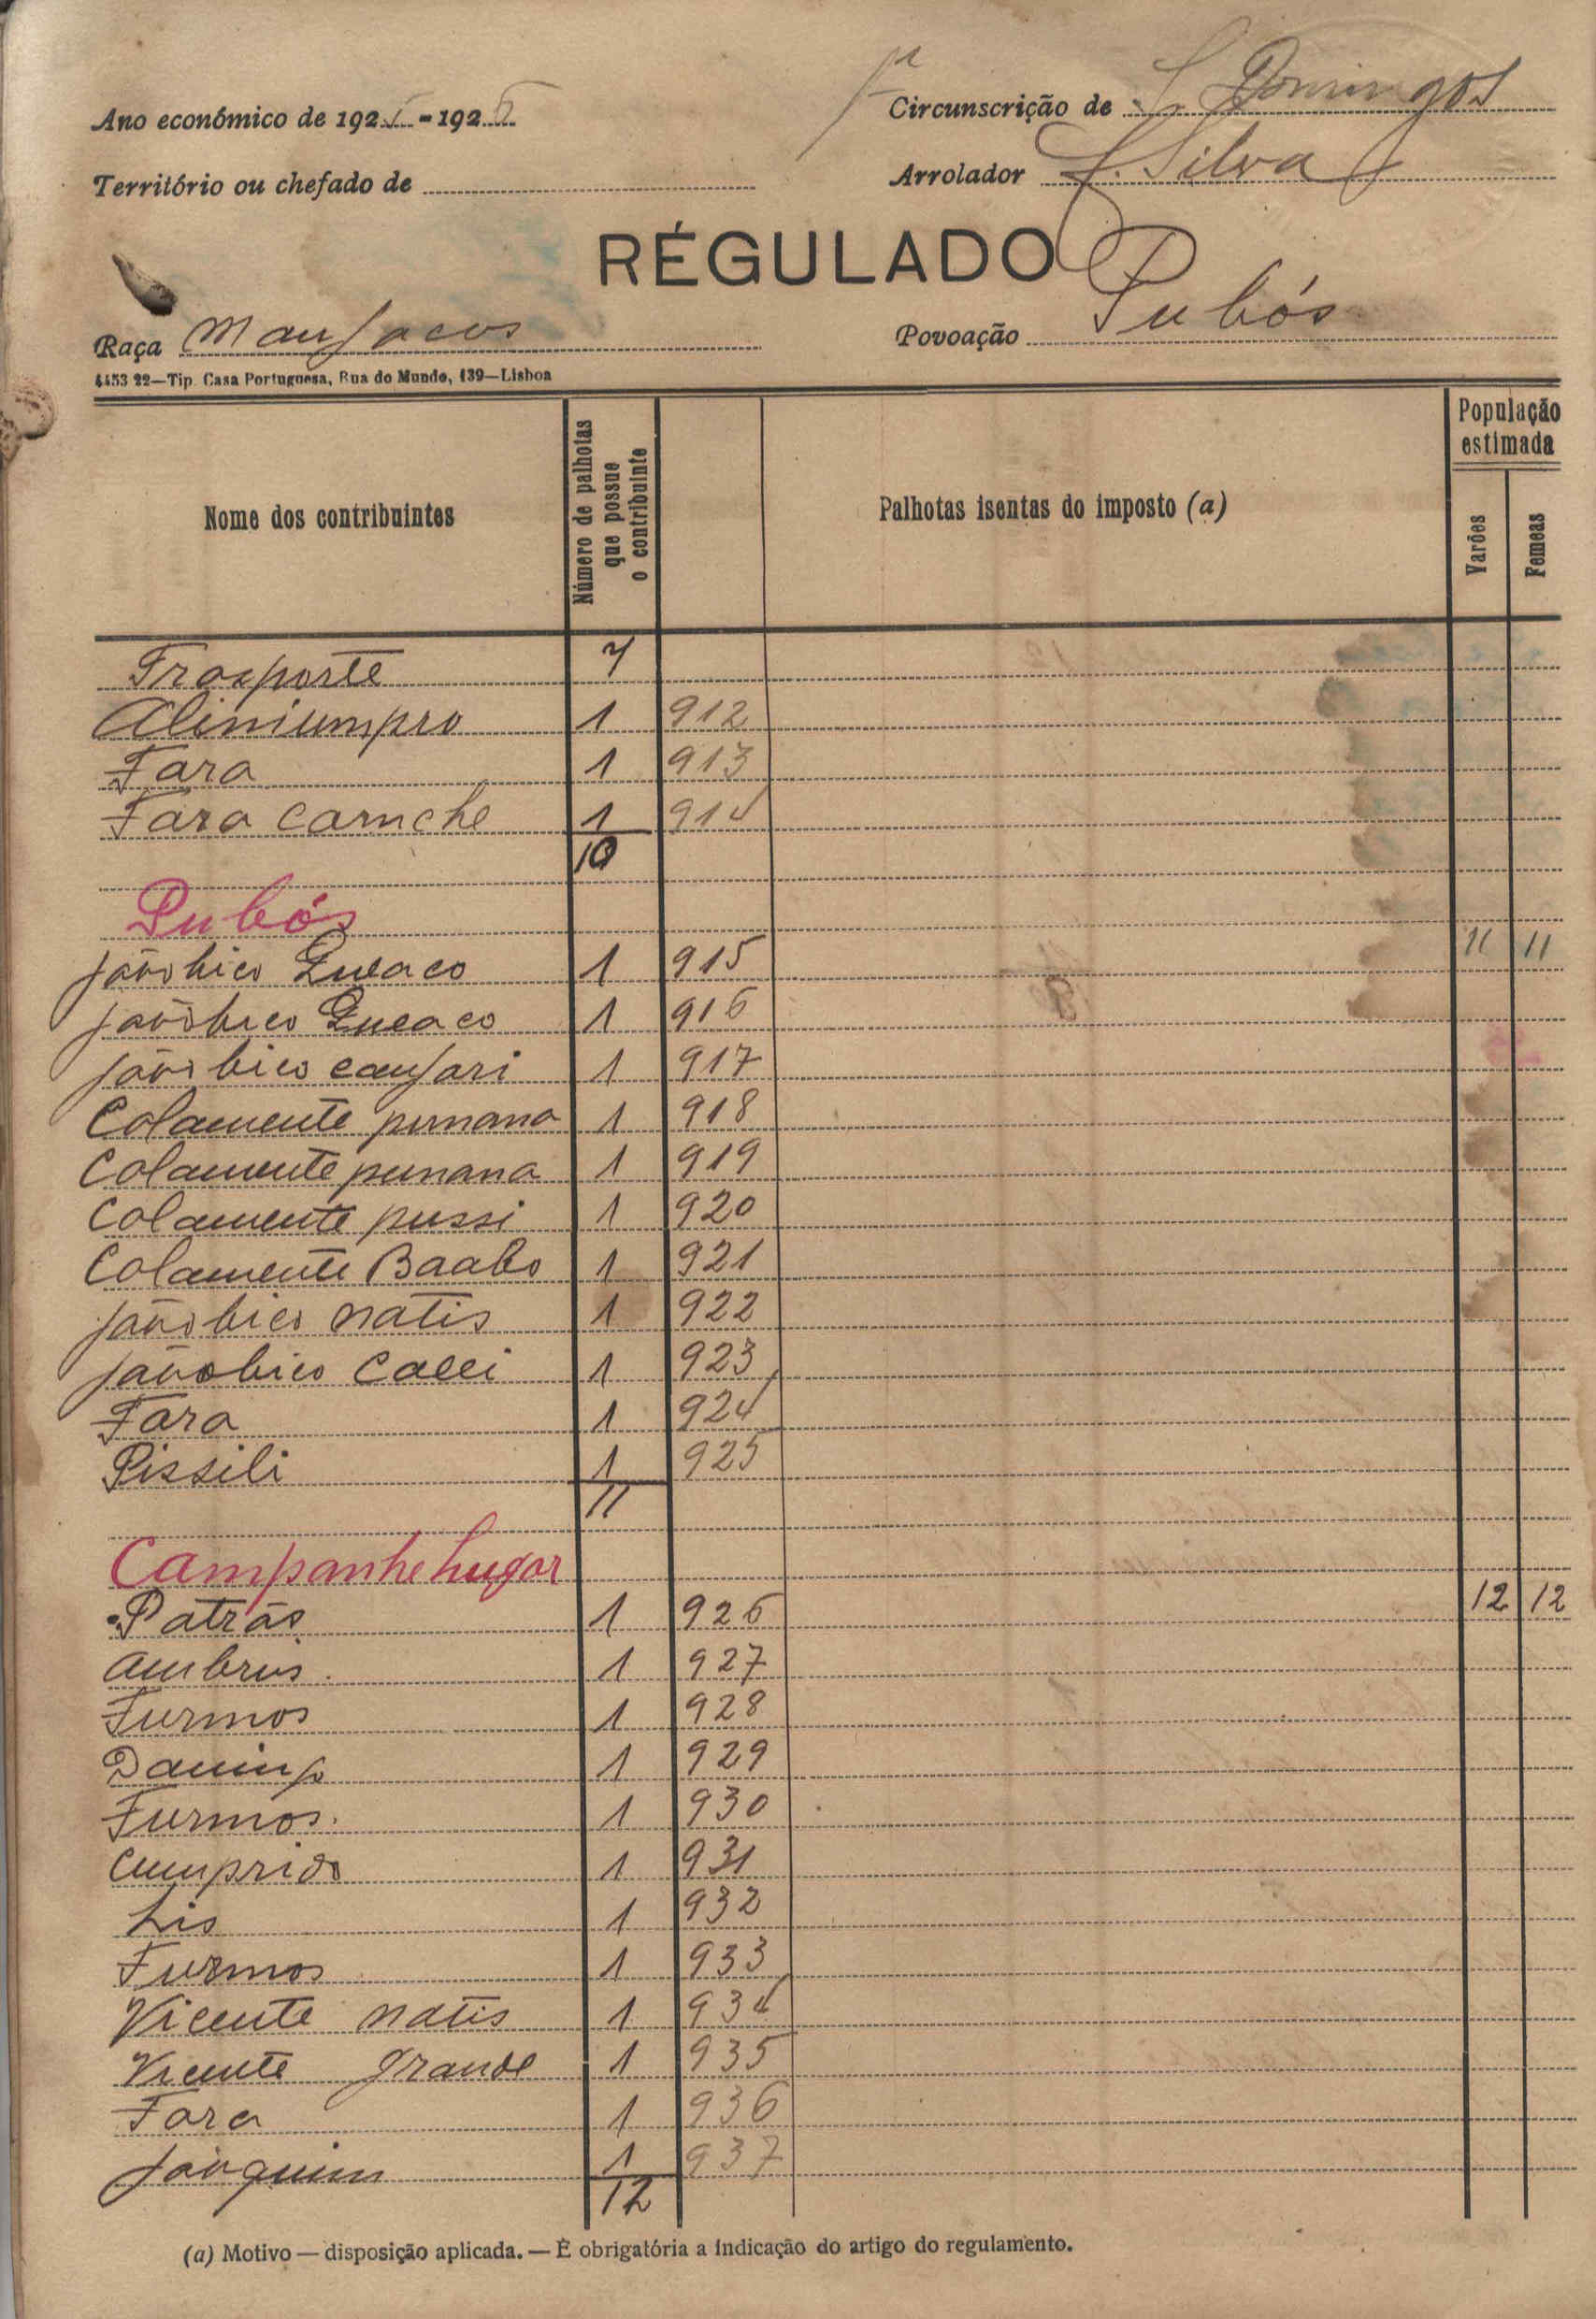 Ano económico de 1925-1926
Circunscrição de S. Domingos
Território ou chefado de
Arrolador J. Silva
RÉGULADO
Raça Manjacos
Povoação Pubós
4453 22—Tip. Casa Portuguesa, Rua do Mundo, 139—Lisboa
Nome dos contribuintes
Número de palhotas que possue o contribuinte
Palhotas isentas do imposto (a)
População estimada
Varões
Femeas
Trasporte 7
Aliniumpro 1 912
Fara 1 913
Fara Carnche 1 914
10
Pubós
Jãobico Queaco 1 915 11 11
Jãobico Queaco 1 916
Jãobico canjari 1 917
Colamente punana 1 918
Colamente punana 1 919
Colamente pussi 1 920
Colamente Baabo 1 921
Jãobico natis 1 922
Jãobico Calei 1 923
Fara 1 924
Pissili 1 925
11
Campanhe Lugar
Patrãs 1 926 12 12
Ambrus 1 927
Furmos 1 928
1 929
Furmos 1 930
Cumprido 1 931
Lis 1 932
Furmos 1 933
Vicente natis 1 934
Vicente grande 1 935
Fara 1 936
Joaquim 1 937
12
(a) Motivo — disposição aplicada. — É obrigatória a indicação do artigo do regulamento.